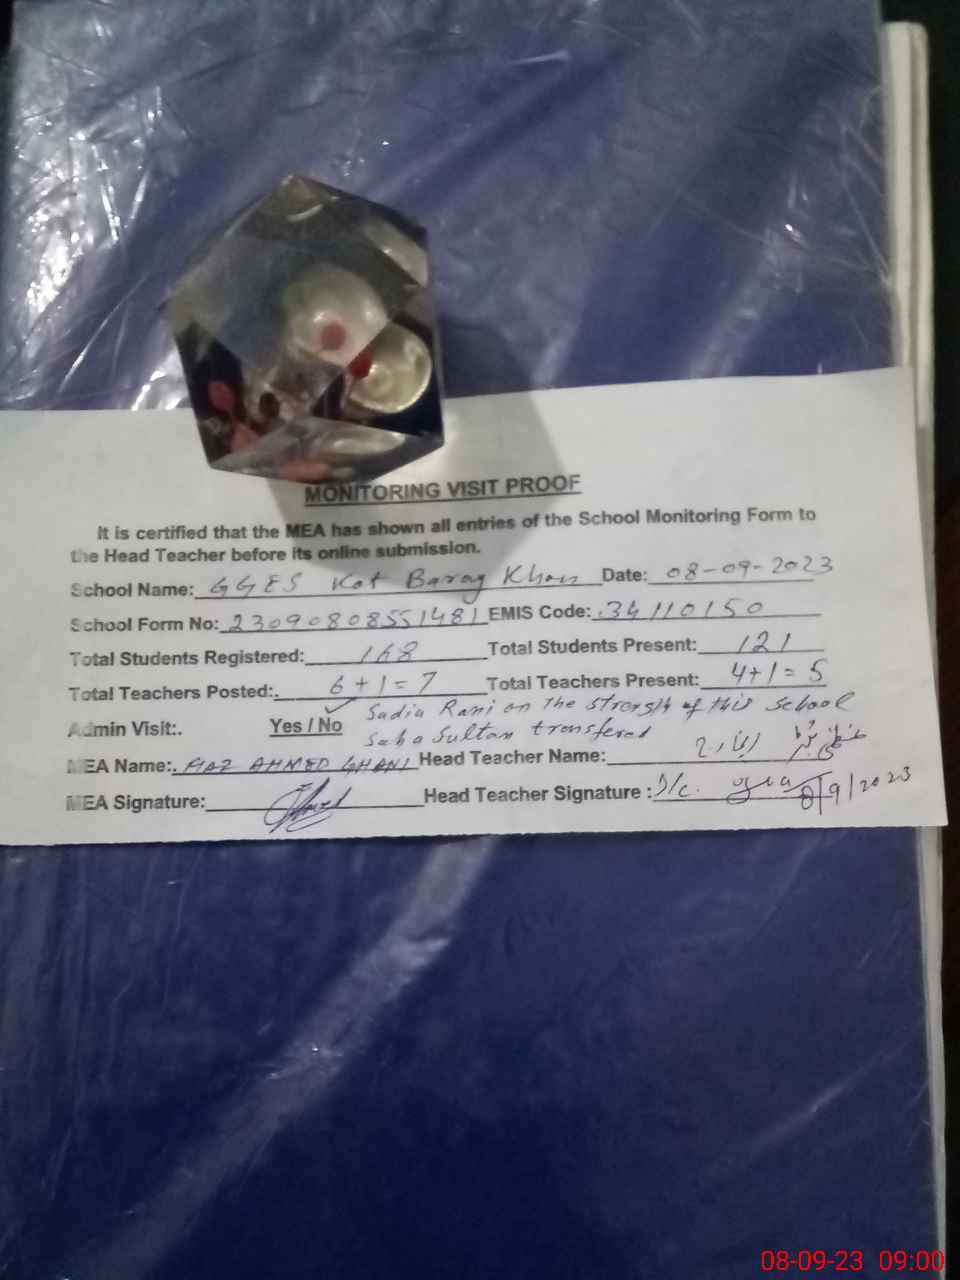 MONITORING VISIT PROOF
It is certified that the MEA has shown all entries of the School Monitoring Form to
the Head Teacher before its online submission.
School Name: GGES Kot Barag Khan Date: 08-09-2023
School Form No: 23090808551481 EMIS Code: 34110150
Total Students Registered: 168 Total Students Present: 121
Total Teachers Posted: 6+1=7 Total Teachers Present: 4+1=5
Sadia Rani on the strength of this school
Admin Visit:. Yes / No ✓ Saba Sultan transfered
MEA Name: AHMED GHANI Head Teacher Name:
MEA Signature: Head Teacher Signature : I/c. 8/9/2023
08-09-23 09:00